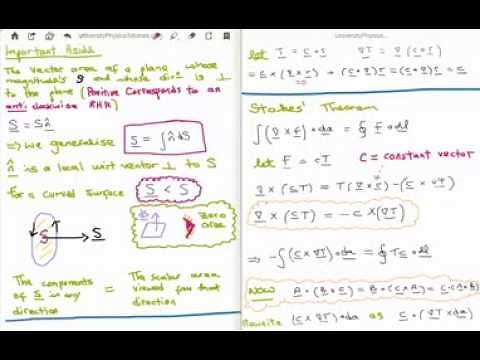 Important Aside
The vector area of a plane whose
magnitude's S and whose dirⁿ is ⊥
to the plane (Positive Corresponds to an
anti clockwise RHR)
S = S n̂
=> we generalise S = ∫ n̂ dS
n̂ is a local unit vector ⊥ to S
for a curved surface S < S
S
S
Zero
area
The components of S in any direction = The scalar area viewed from that direction
let
Stokes' Theorem
∫(∇ × F) • da = ∮ F • dl
let F = cT C = constant vector
∇ × (cT) = T(∇ × c) - (c × ∇T)
∇ × (cT) = -c × (∇T)
=> -∫(c × ∇T) • da = ∮ T c • dl
NOW A • (B × C) = B • (C × A) = C • (A × B)
Rewrite (c × ∇T) • da as